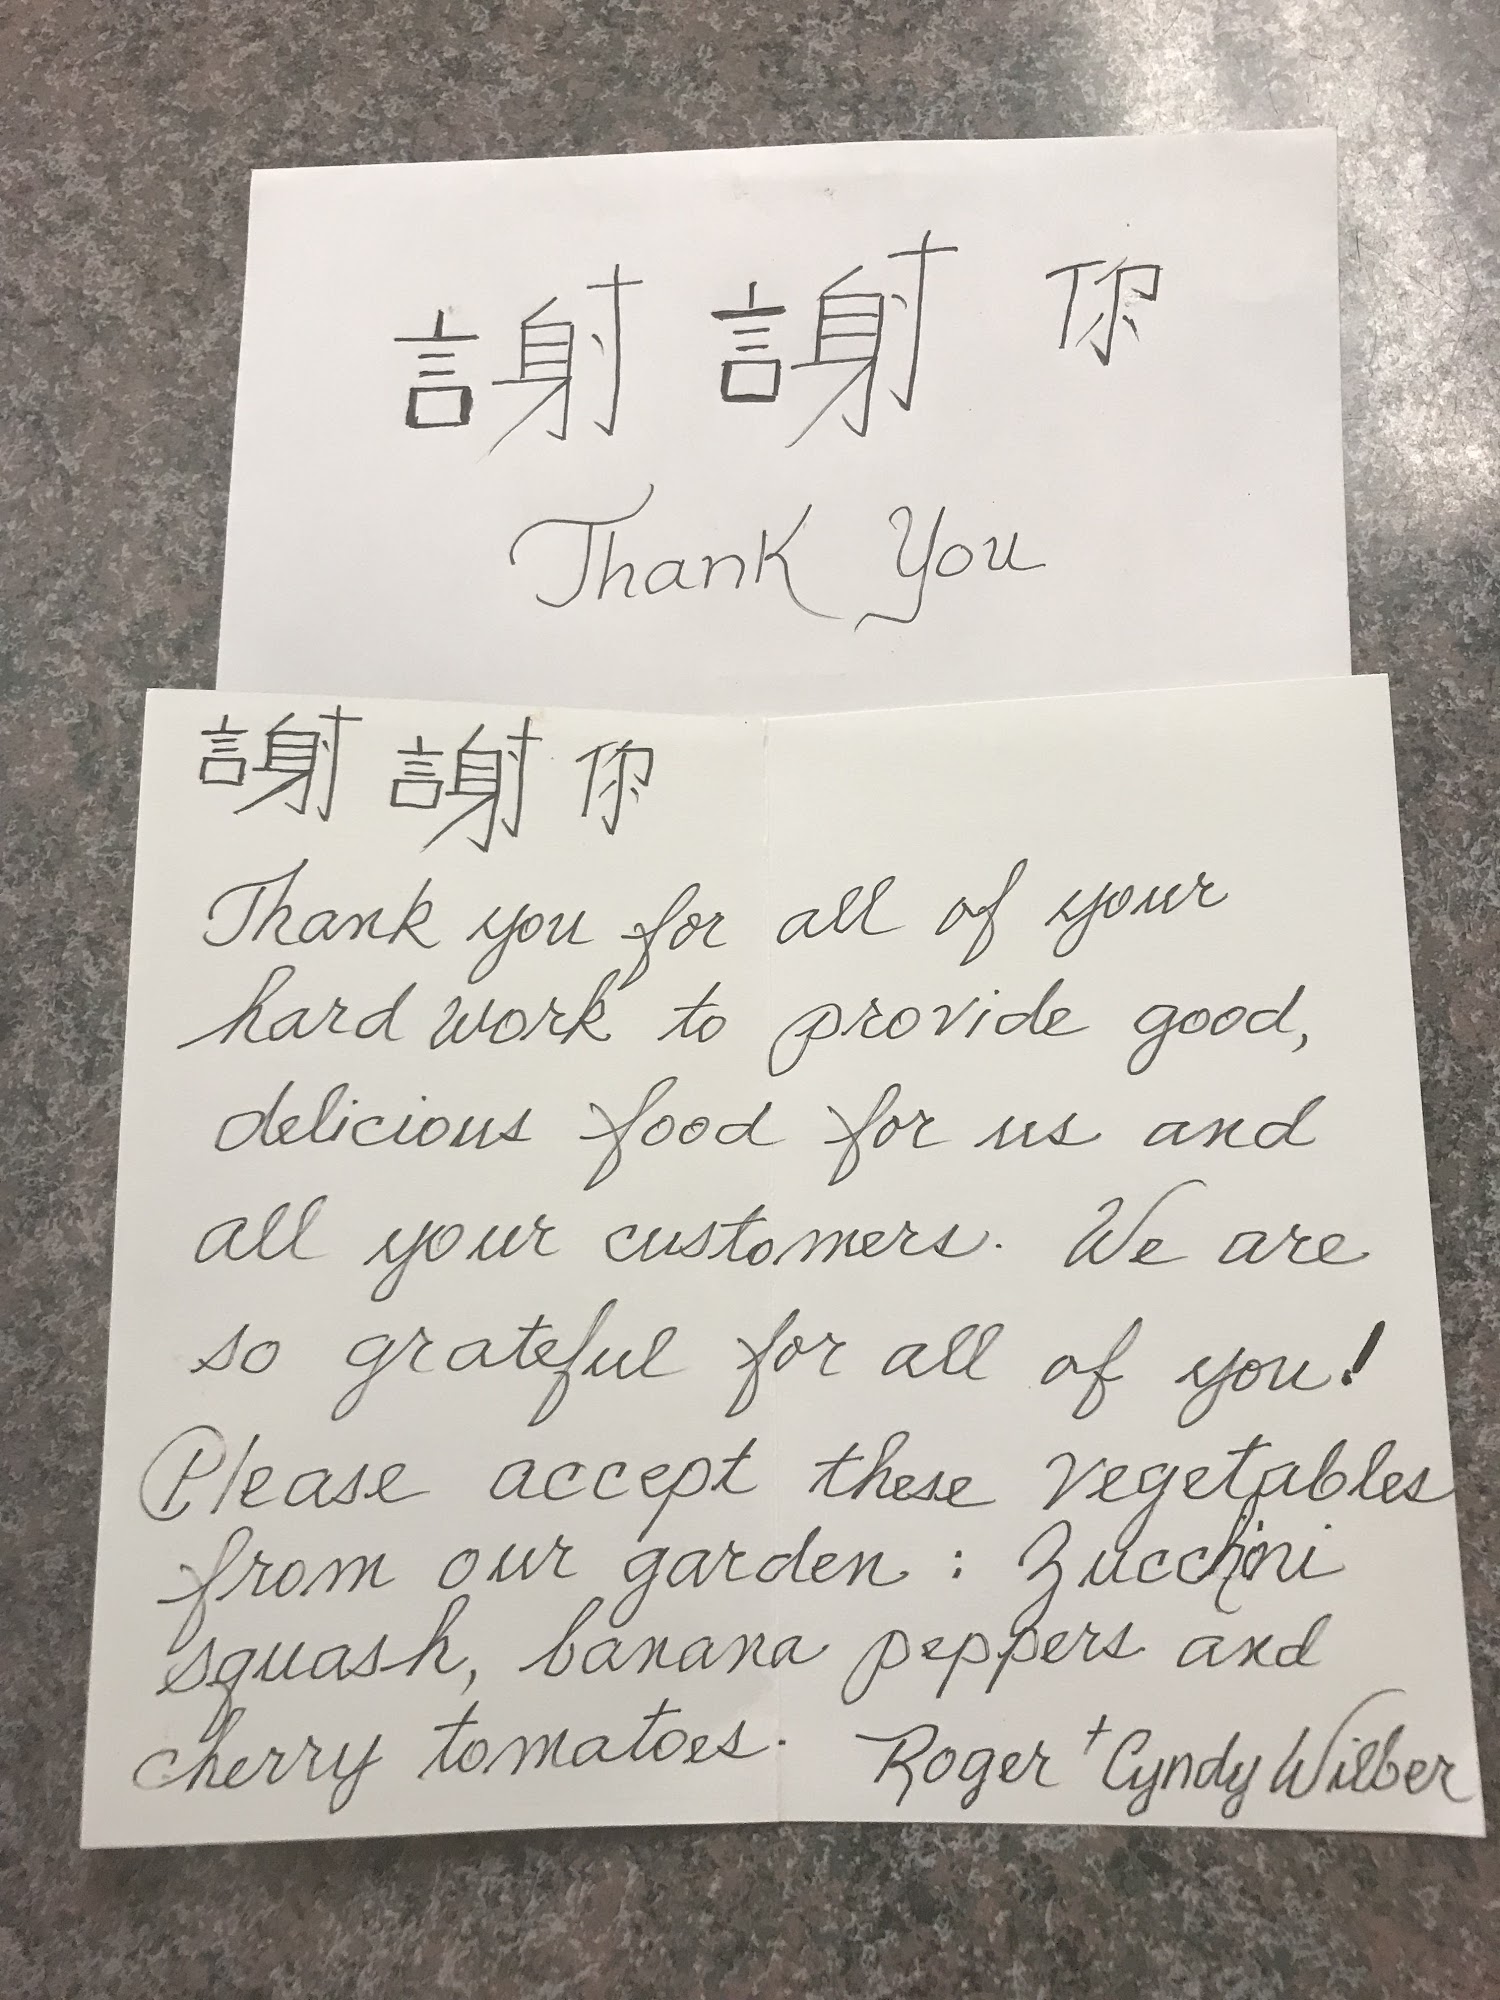 謝 謝 你
Thank You
謝 謝 你
Thank you for all of your
hard work to provide good,
delicious food for us and
all your customers. We are
so grateful for all of you!
Please accept these vegetables
from our garden : Zucchini
squash, banana peppers and
cherry tomatoes. Roger + Cyndy Wilber